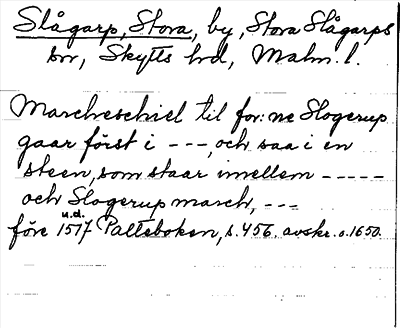 Slågarp, Stora, by, Stora Slågarps
sn, Skytts hd, Malm. l.
Marckeschiel til for:ne Slogerup
gaar først i ---, och saa i en
steen, som staar imellem -----
och Slogerup march, ---
u.d.
före 1517 Palteboken, s. 456. avskr. o. 1650.